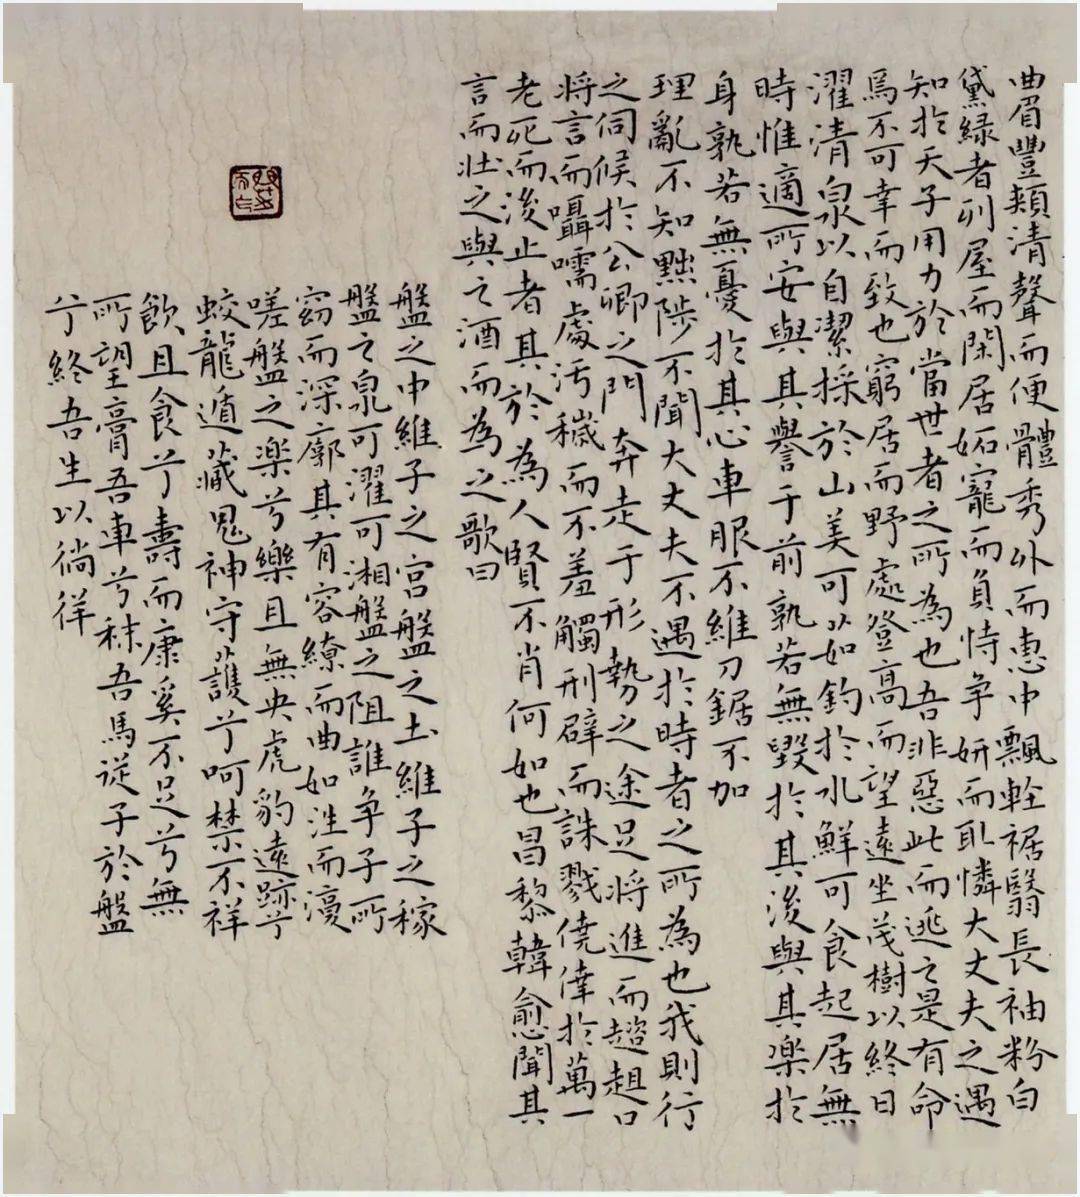 曲眉豐頰清聲而便體秀外而惠中飄輕裾翳長袖粉白
黛緑者列屋而閑居妬寵而負恃争妍而取憐大丈夫之遇
知於天子用力於當世者之所為也吾非惡此而逃之是有命
焉不可幸而致也窮居而野處登高而望遠坐茂樹以終日
濯清泉以自潔採於山美可茹釣於水鮮可食起居無
時惟適所安與其譽于前孰若無毀於其後與其楽於
身孰若無憂於其心車服不維刀鋸不加
理亂不知黜陟不聞大丈夫不遇於時者之所為也我則行
之伺候於公卿之門奔走于形勢之途足将進而趑趄口
将言而囁嚅處汚穢而不羞觸刑辟而誅戮僥倖於萬一
老死而後止者其於為人賢不肖何如也昌黎韓愈聞其
言而壮之與之酒而為之歌曰
盤之中維子之宫盤之土維子之稼
盤之泉可濯可湘盤之阻誰争子所
窈而深廓其有容繚而曲如往而復
嗟盤之楽兮樂且無央虎豹遠跡兮
蛟龍遁藏鬼神守護兮呵禁不祥
飲且食兮壽而康奚不足兮無
所望膏吾車兮秣吾馬從子於盤
兮終吾生以徜徉